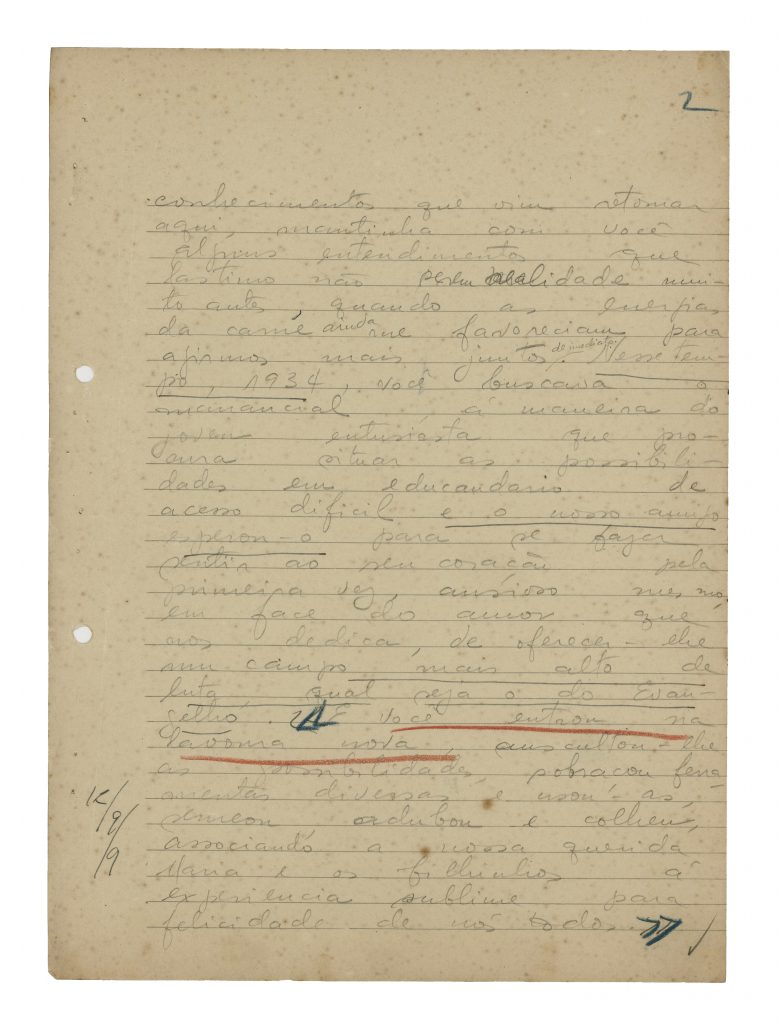 2
conhecimentos que vim retomar
aqui, mantinha com você
alguns entendimentos que
lastimo não serem realidade mui-
to antes, quando as energias
da carne ainda me favoreciam para
agirmos mais juntos de imediato. Nesse tem-
po, 1934, você buscava o
manancial á maneira do
joven entusiasta que pro-
cura situar as possibili-
dades em educandario de
acesso dificil e o nosso amigo
esperou-o para se fazer
sentir ao seu coração pela
primeira vez, ansioso mesmo,
em face do amor que
nos dedica, de oferecer-lhe
um campo mais alto de
luta, qual seja o do Evan-
gelho. E você entrou na
lavoura nova, auscultou-lhe
as possibilidades, sobraçou ferra-
mentas diversas e usou-as,
semeou adubou e colheu,
associando a nossa querida
Maria e os filhinhos á
experiencia sublime para
felicidade de nós todos.